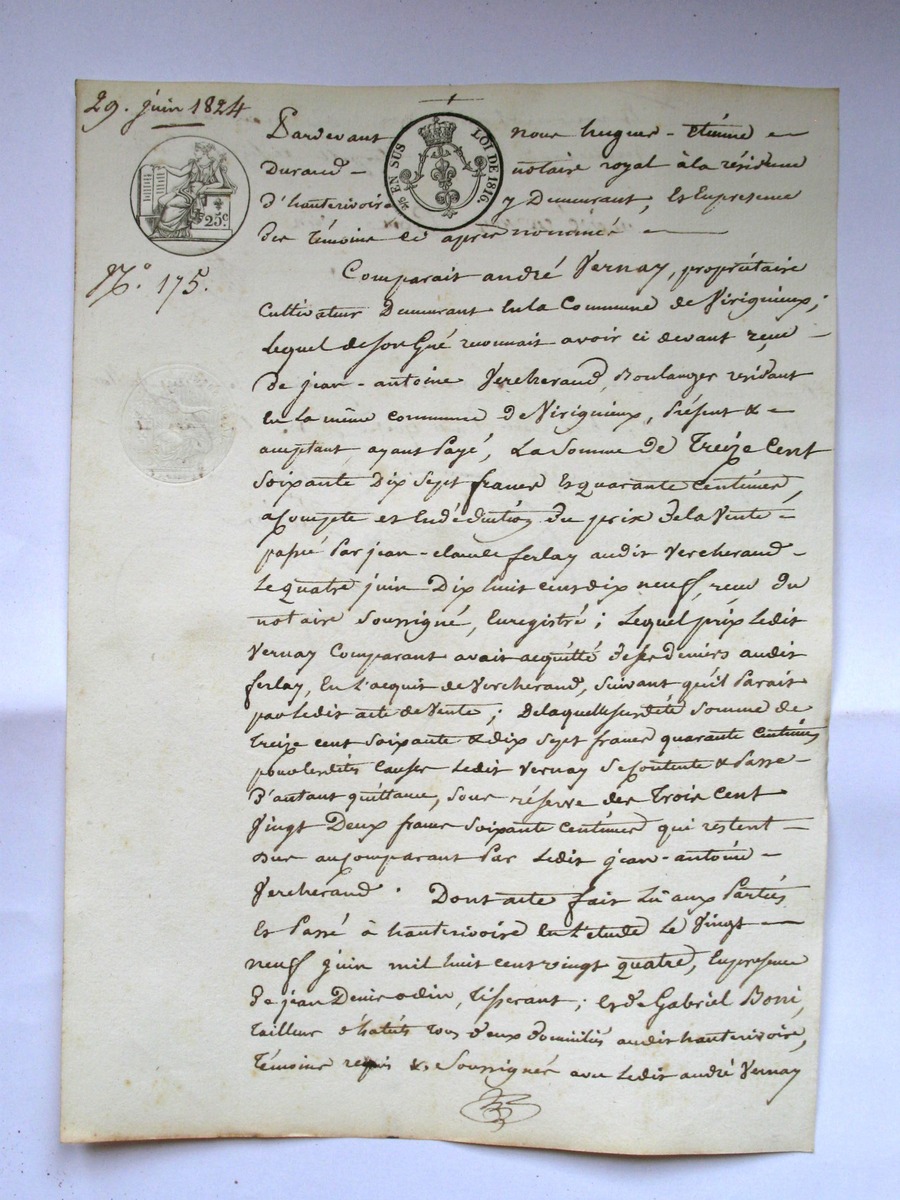 29. juin 1824
Pardevant nous hugues - etienne
Durand - notaire royal à la résidence
d'hauterivoire y Demeurant, Et Enpresence
des témoins ci après nommés
25 EN SUS LOI DE 1816
25c.
N.o 175.
Comparait andré Vernay, propriétaire
Cultivateur Demeurant En la Commune de Virigneux ;
Lequel de son Gré reconnait avoir ci devant reçu -
de jean - antoine Vercherand, Boulanger residant
en La même commune de Virigneux, Présent & -
acceptant ayant Payé, La Somme de Treize Cent
Soixante Dix Sept francs Et quarante Centimes,
acompte et En déduction du prix de la Vente -
passé Par jean - claude ferlay audit Vercherand -
Le quatre juin Dix huit cent dix neuf, recu du
notaire Soussigné, Enregistré ; Lequel prix Ledit
Vernay Comparant avait acquitté de ses Deniers audit
ferlay, En L'acquit de Vercherand, Suivant qu'il Parait
par Ledit acte de Vente ; De laquelle susdite Somme de
Treize cent soixante & dix sept francs quarante Centimes
pour Lesdites Causes Ledit Vernay Se contente & Passe -
D'autant quittance, sous réserve des Trois Cent
Vingt Deux francs Soixante Centimes qui restent -
dus au comparant Par Ledit jean - antoine -
Vercherand . Dont acte fait Lu aux Parties
Et Passé à hauterivoire En L'etude Le Vingt -
neuf juin mil huit cent vingt quatre, En presence
de jean Denis odin, Tisserant ; Et de Gabriel Boni,
Tailleur d'habits tous deux domiciliés audit hauterivoire,
Témoins requis & Soussignés avec Ledit andré Vernay